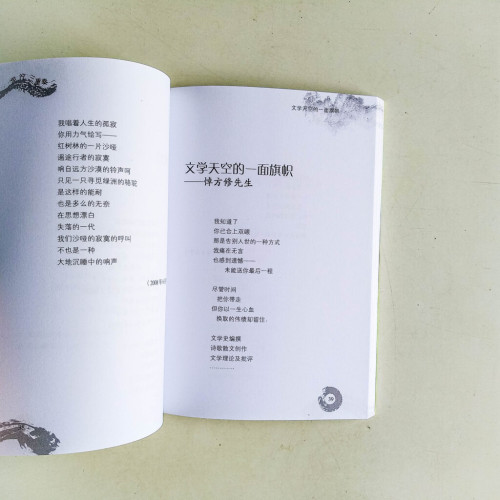 我唱着人生的孤寂
你用力气绘写——
红树林的一片沙哑
遥途行者的寂寞
响自远方沙漠的铃声呵
只见一只寻觅绿洲的骆驼
是这样的能耐
也是多么的无奈
在思想漂白
失落的一代
我们沙哑的寂寞的呼叫
不也是一种
大地沉睡中的响声
(2008
文学天空的一面旗帜
文学天空的一面旗帜
——悼方修先生
我知道了
你已合上双眼
那是告别人世的一种方式
我痛而无言
也感到遗憾——
未能送你最后一程
尽管时间
把你带走
但你以一生心血
换取的传绩却留住
文学史编撰
诗歌散文创作
文学理论及批评
…………
39